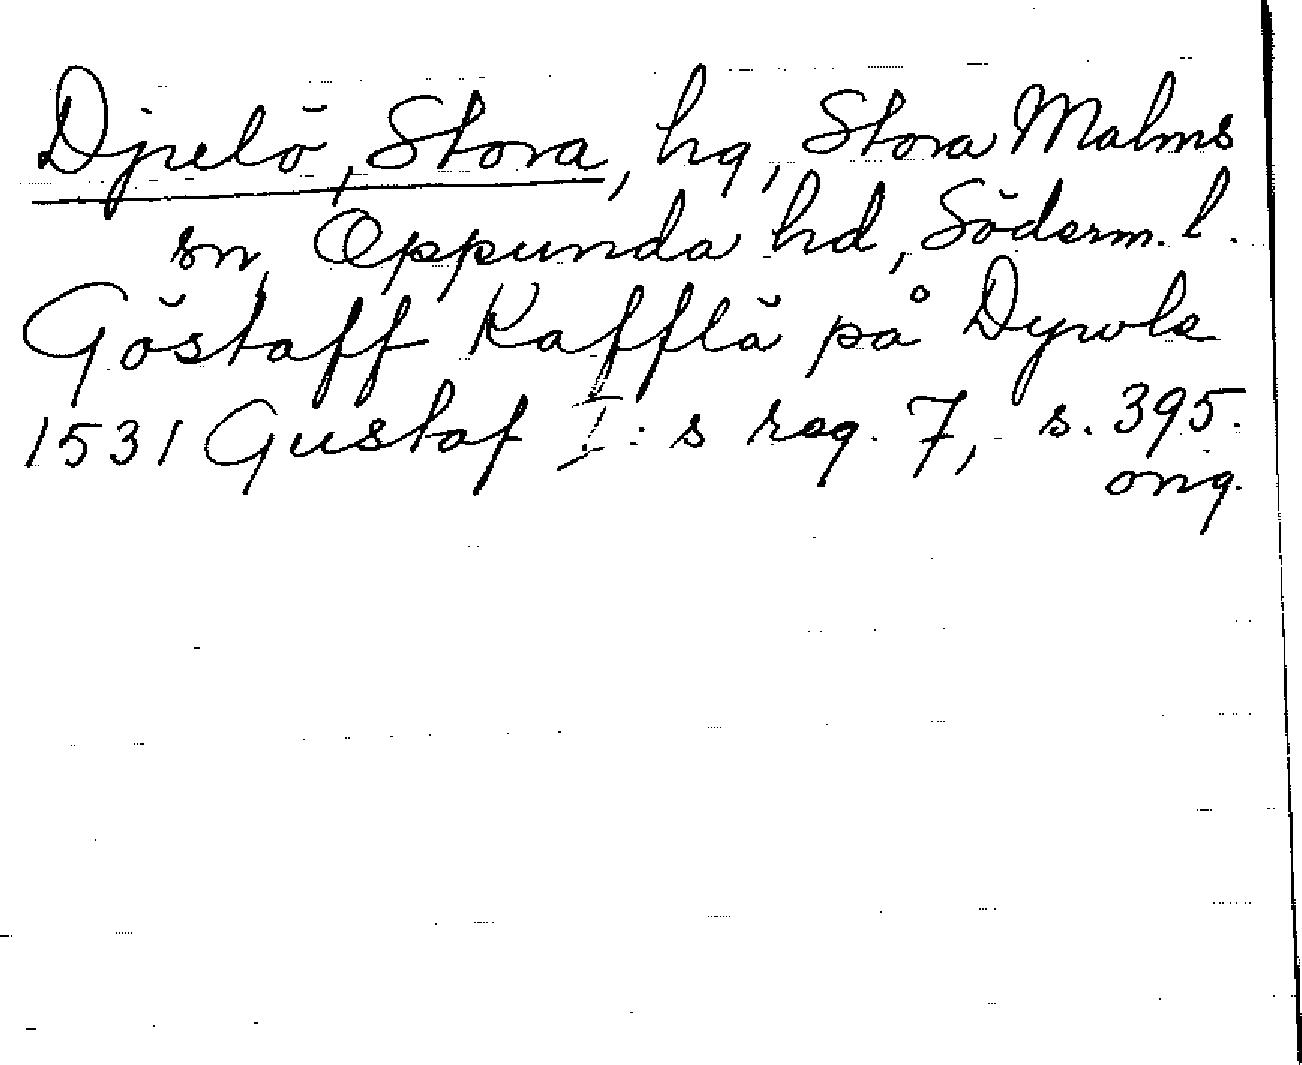 Djulö, Stora, hg, Stora Malms
sn, Oppunda hd, Söderm. l.
Göstaff Kafflä på Dywle
1531 Gustaf I:s reg. 7, s. 395.
ong.